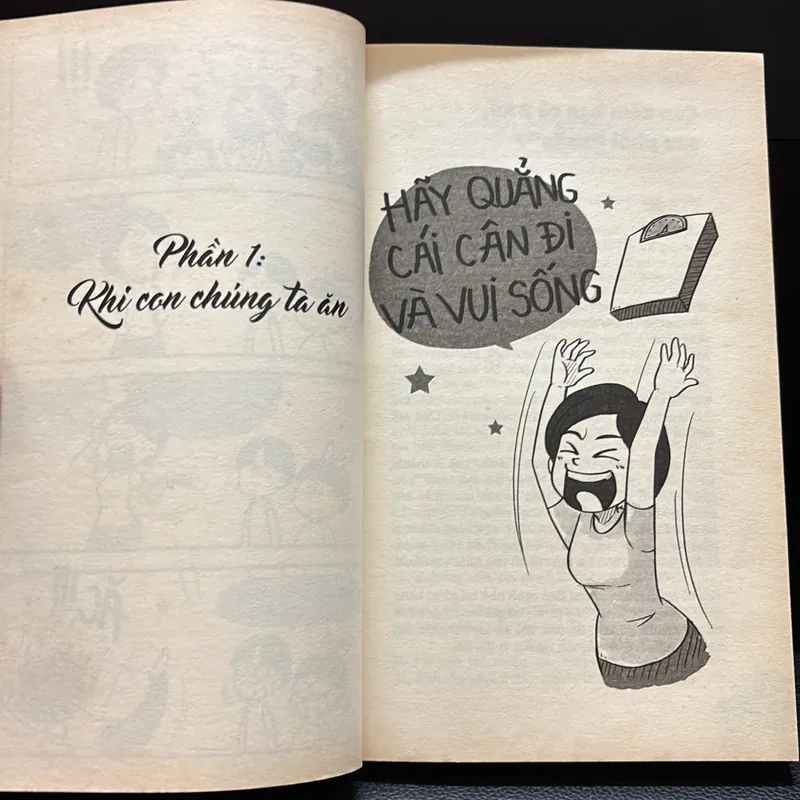 Phần 1:
Khi con chúng ta ăn
HÃY QUẲNG
CÁI CÂN ĐI
VÀ VUI SỐNG